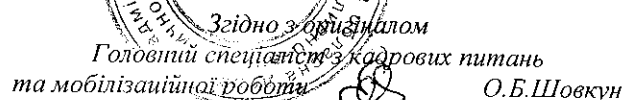 Згідно з оригіналом
Головний спеціаліст з кадрових питань
та мобілізаційної роботи О.Б.Шовкун